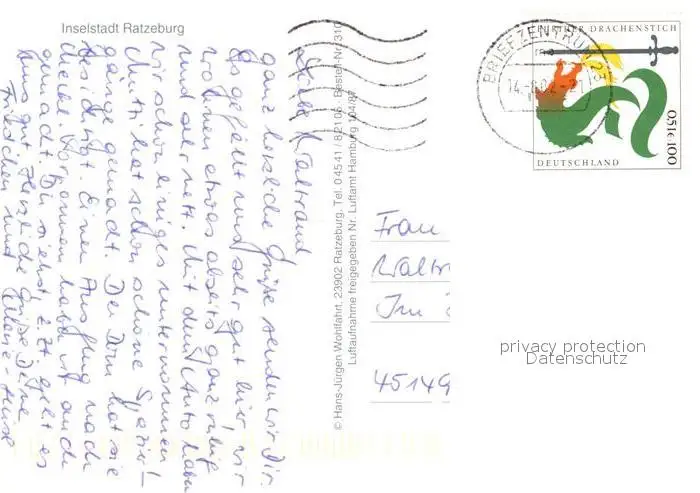 Inselstadt Ratzeburg
Liebe Waltraud
ganz herzliche Grüße senden wir Dir.
Es gefällt uns sehr gut hier, wir
wohnen etwas abseits ganz
und sehr nett. Mit dem Auto haben
wir schon einiges unternommen
Mutti hat schon schöne Spazier-
gänge gemacht. Den Dom hat sie
besichtigt. Einen Ausflug nach
Meckl. Vorpommern haben wir auch
gemacht. Du siehst z.Zt. geht es
uns gut. Herzliche Grüße Deine
Friedchen und
© Hans-Jürgen Wohlfahrt, 23902 Ratzeburg, Tel. 0 45 41 / 8 21 05 · Bestell-Nr. 310
Luftaufnahme freigegeben Nr. Luftamt Hamburg 104/87
BRIEFZENTRUM 23
FURTHER DRACHENSTICH
DEUTSCHLAND
0,51€ 100
Frau
Waltr
Im
45149
privacy protection
Datenschutz